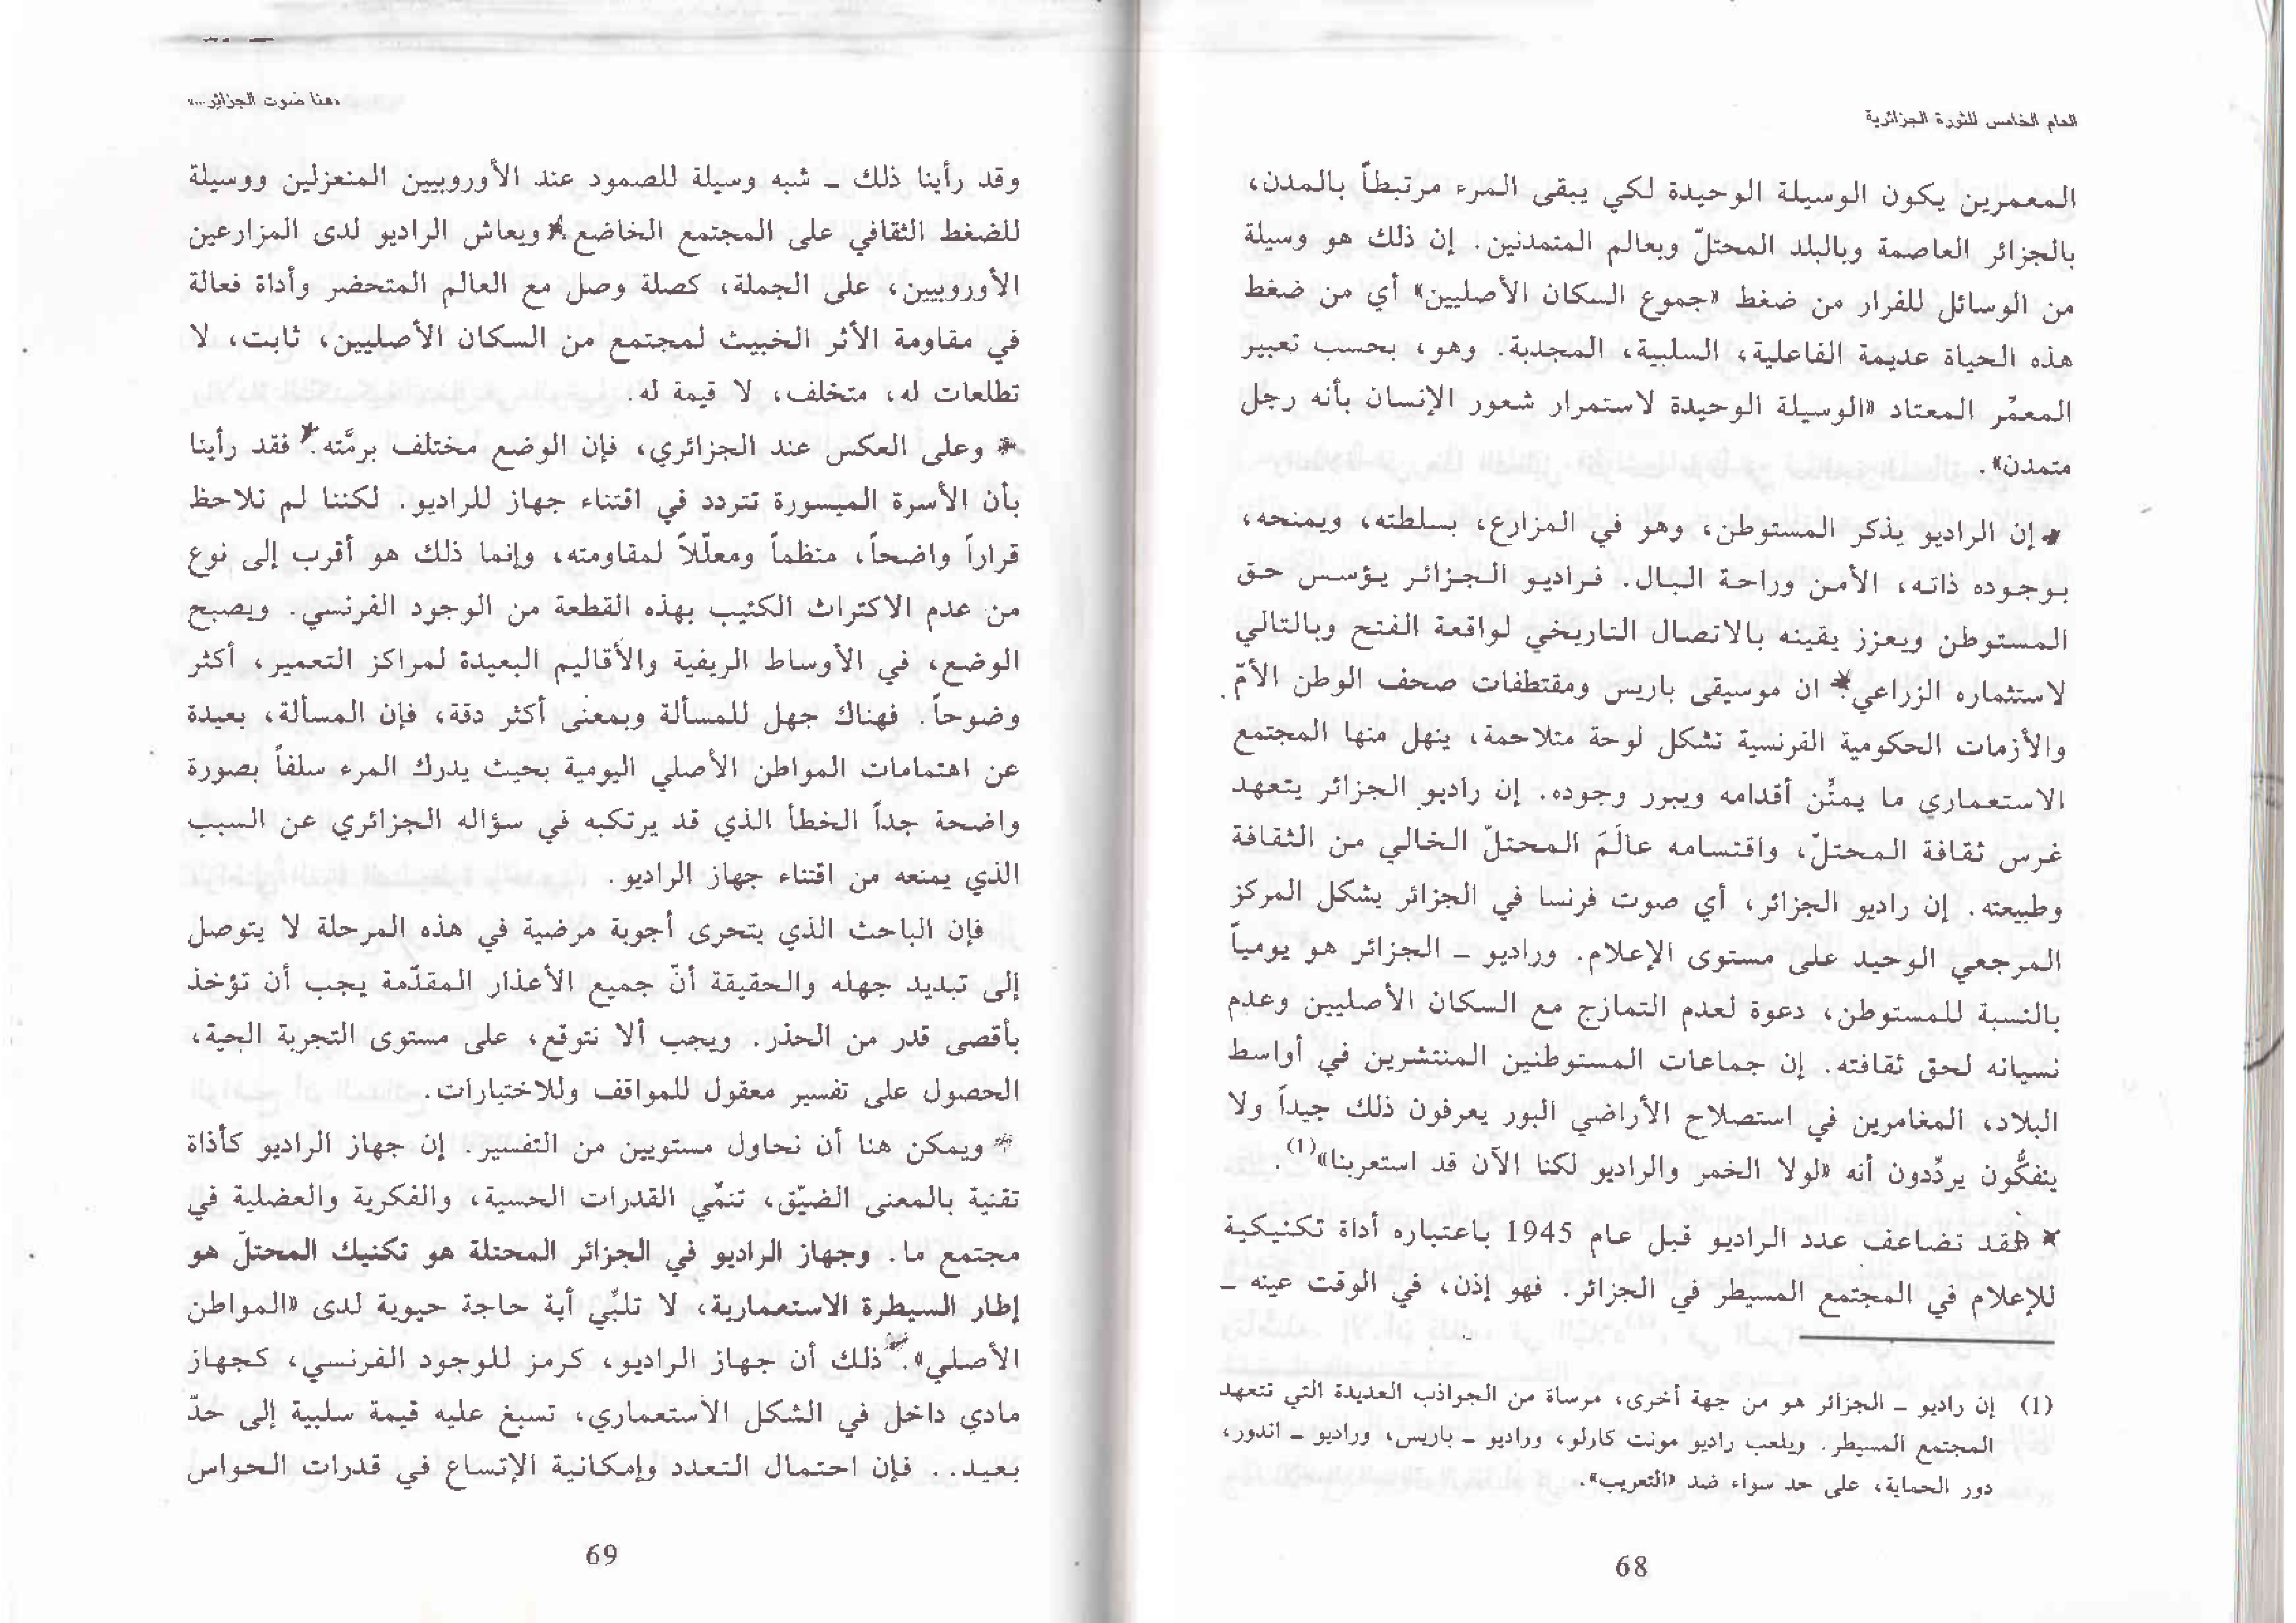 العام الخامس للثورة الجزائرية
المعمرين يكون الوسيلة الوحيدة لكي يبقى المرء مرتبطاً بالمدن،
بالجزائر العاصمة وبالبلد المحتلّ وبعالم المتمدنين. إن ذلك هو وسيلة
من الوسائل للفرار من ضغط «جموع السكان الأصليين» أي من ضغط
هذه الحياة عديمة الفاعلية، السلبية، المجدبة. وهو، بحسب تعبير
المعمِّر المعتاد «الوسيلة الوحيدة لاستمرار شعور الإنسان بأنه رجل
متمدن».
إن الراديو يذكر المستوطن، وهو في المزارع، بسلطته، ويمنحه،
بوجوده ذاته، الأمن وراحة البال. فراديو الجزائر يؤسس حق
المستوطن ويعزز يقينه بالاتصال التاريخي لواقعة الفتح وبالتالي
لاستثماره الزراعي. ان موسيقى باريس ومقتطفات صحف الوطن الأمّ
والأزمات الحكومية الفرنسية تشكل لوحة متلاحمة، ينهل منها المجتمع
الاستعماري ما يمتِّن أقدامه ويبرر وجوده. إن راديو الجزائر يتعهد
غرس ثقافة المحتلّ، واقتسامه عالَمَ المحتلّ الخالي من الثقافة
وطبيعته. إن راديو الجزائر، أي صوت فرنسا في الجزائر يشكل المركز
المرجعي الوحيد على مستوى الإعلام. وراديو ــ الجزائر هو يومياً
بالنسبة للمستوطن، دعوة لعدم التمازج مع السكان الأصليين وعدم
نسيانه لحق ثقافته. إن جماعات المستوطنين المنتشرين في أواسط
البلاد، المغامرين في استصلاح الأراضي البور يعرفون ذلك جيداً ولا
ينفكُّون يردِّدون أنه «لولا الخمر والراديو لكنا الآن قد استعربنا»(1).
فقد تضاعف عدد الراديو قبل عام 1945 باعتباره أداة تكنيكية
للإعلام في المجتمع المسيطر في الجزائر. فهو إذن، في الوقت عينه ــ
(1) إن راديو ــ الجزائر هو من جهة أخرى، مرساة من الجواذب العديدة التي تتعهد
المجتمع المسيطر. ويلعب راديو مونت كارلو، وراديو ــ باريس، وراديو ــ اندور،
دور الحماية، على حد سواء ضد «التعريب».
68
«هنا صوت الجزائر...»
وقد رأينا ذلك ــ شبه وسيلة للصمود عند الأوروبيين المنعزلين ووسيلة
للضغط الثقافي على المجتمع الخاضع. ويعاش الراديو لدى المزارعين
الأوروبيين، على الجملة، كصلة وصل مع العالم المتحضر وأداة فعالة
في مقاومة الأثر الخبيث لمجتمع من السكان الأصليين، ثابت، لا
تطلعات له، متخلف، لا قيمة له.
وعلى العكس عند الجزائري، فإن الوضع مختلف برمَّته. فقد رأينا
بأن الأسرة الميسورة تتردد في اقتناء جهاز للراديو. لكننا لم نلاحظ
قراراً واضحاً، منظماً ومعلّلاً لمقاومته، وإنما ذلك هو أقرب إلى نوع
من عدم الاكتراث الكئيب بهذه القطعة من الوجود الفرنسي. ويصبح
الوضع، في الأوساط الريفية والأقاليم البعيدة لمراكز التعمير، أكثر
وضوحاً. فهناك جهل للمسألة وبمعنى أكثر دقة، فإن المسألة، بعيدة
عن اهتمامات المواطن الأصلي اليومية بحيث يدرك المرء سلفاً بصورة
واضحة جداً الخطأ الذي قد يرتكبه في سؤاله الجزائري عن السبب
الذي يمنعه من اقتناء جهاز الراديو.
فإن الباحث الذي يتحرى أجوبة مرضية في هذه المرحلة لا يتوصل
إلى تبديد جهله والحقيقة أنّ جميع الأعذار المقدّمة يجب أن تؤخذ
بأقصى قدر من الحذر. ويجب ألا نتوقع، على مستوى التجربة الحية،
الحصول على تفسير معقول للمواقف وللاختيارات.
ويمكن هنا أن نحاول مستويين من التفسير. إن جهاز الراديو كأداة
تقنية بالمعنى الضيّق، تنمِّي القدرات الحسية، والفكرية والعضلية في
مجتمع ما. وجهاز الراديو في الجزائر المحتلة هو تكنيك المحتلّ هو
إطار السيطرة الاستعمارية، لا تلبِّي أية حاجة حيوية لدى «المواطن
الأصلي». ذلك أن جهاز الراديو، كرمز للوجود الفرنسي، كجهاز
مادي داخل في الشكل الاستعماري، تسبغ عليه قيمة سلبية إلى حدّ
بعيد.. فإن احتمال التعدد وإمكانية الإتساع في قدرات الحواس
69